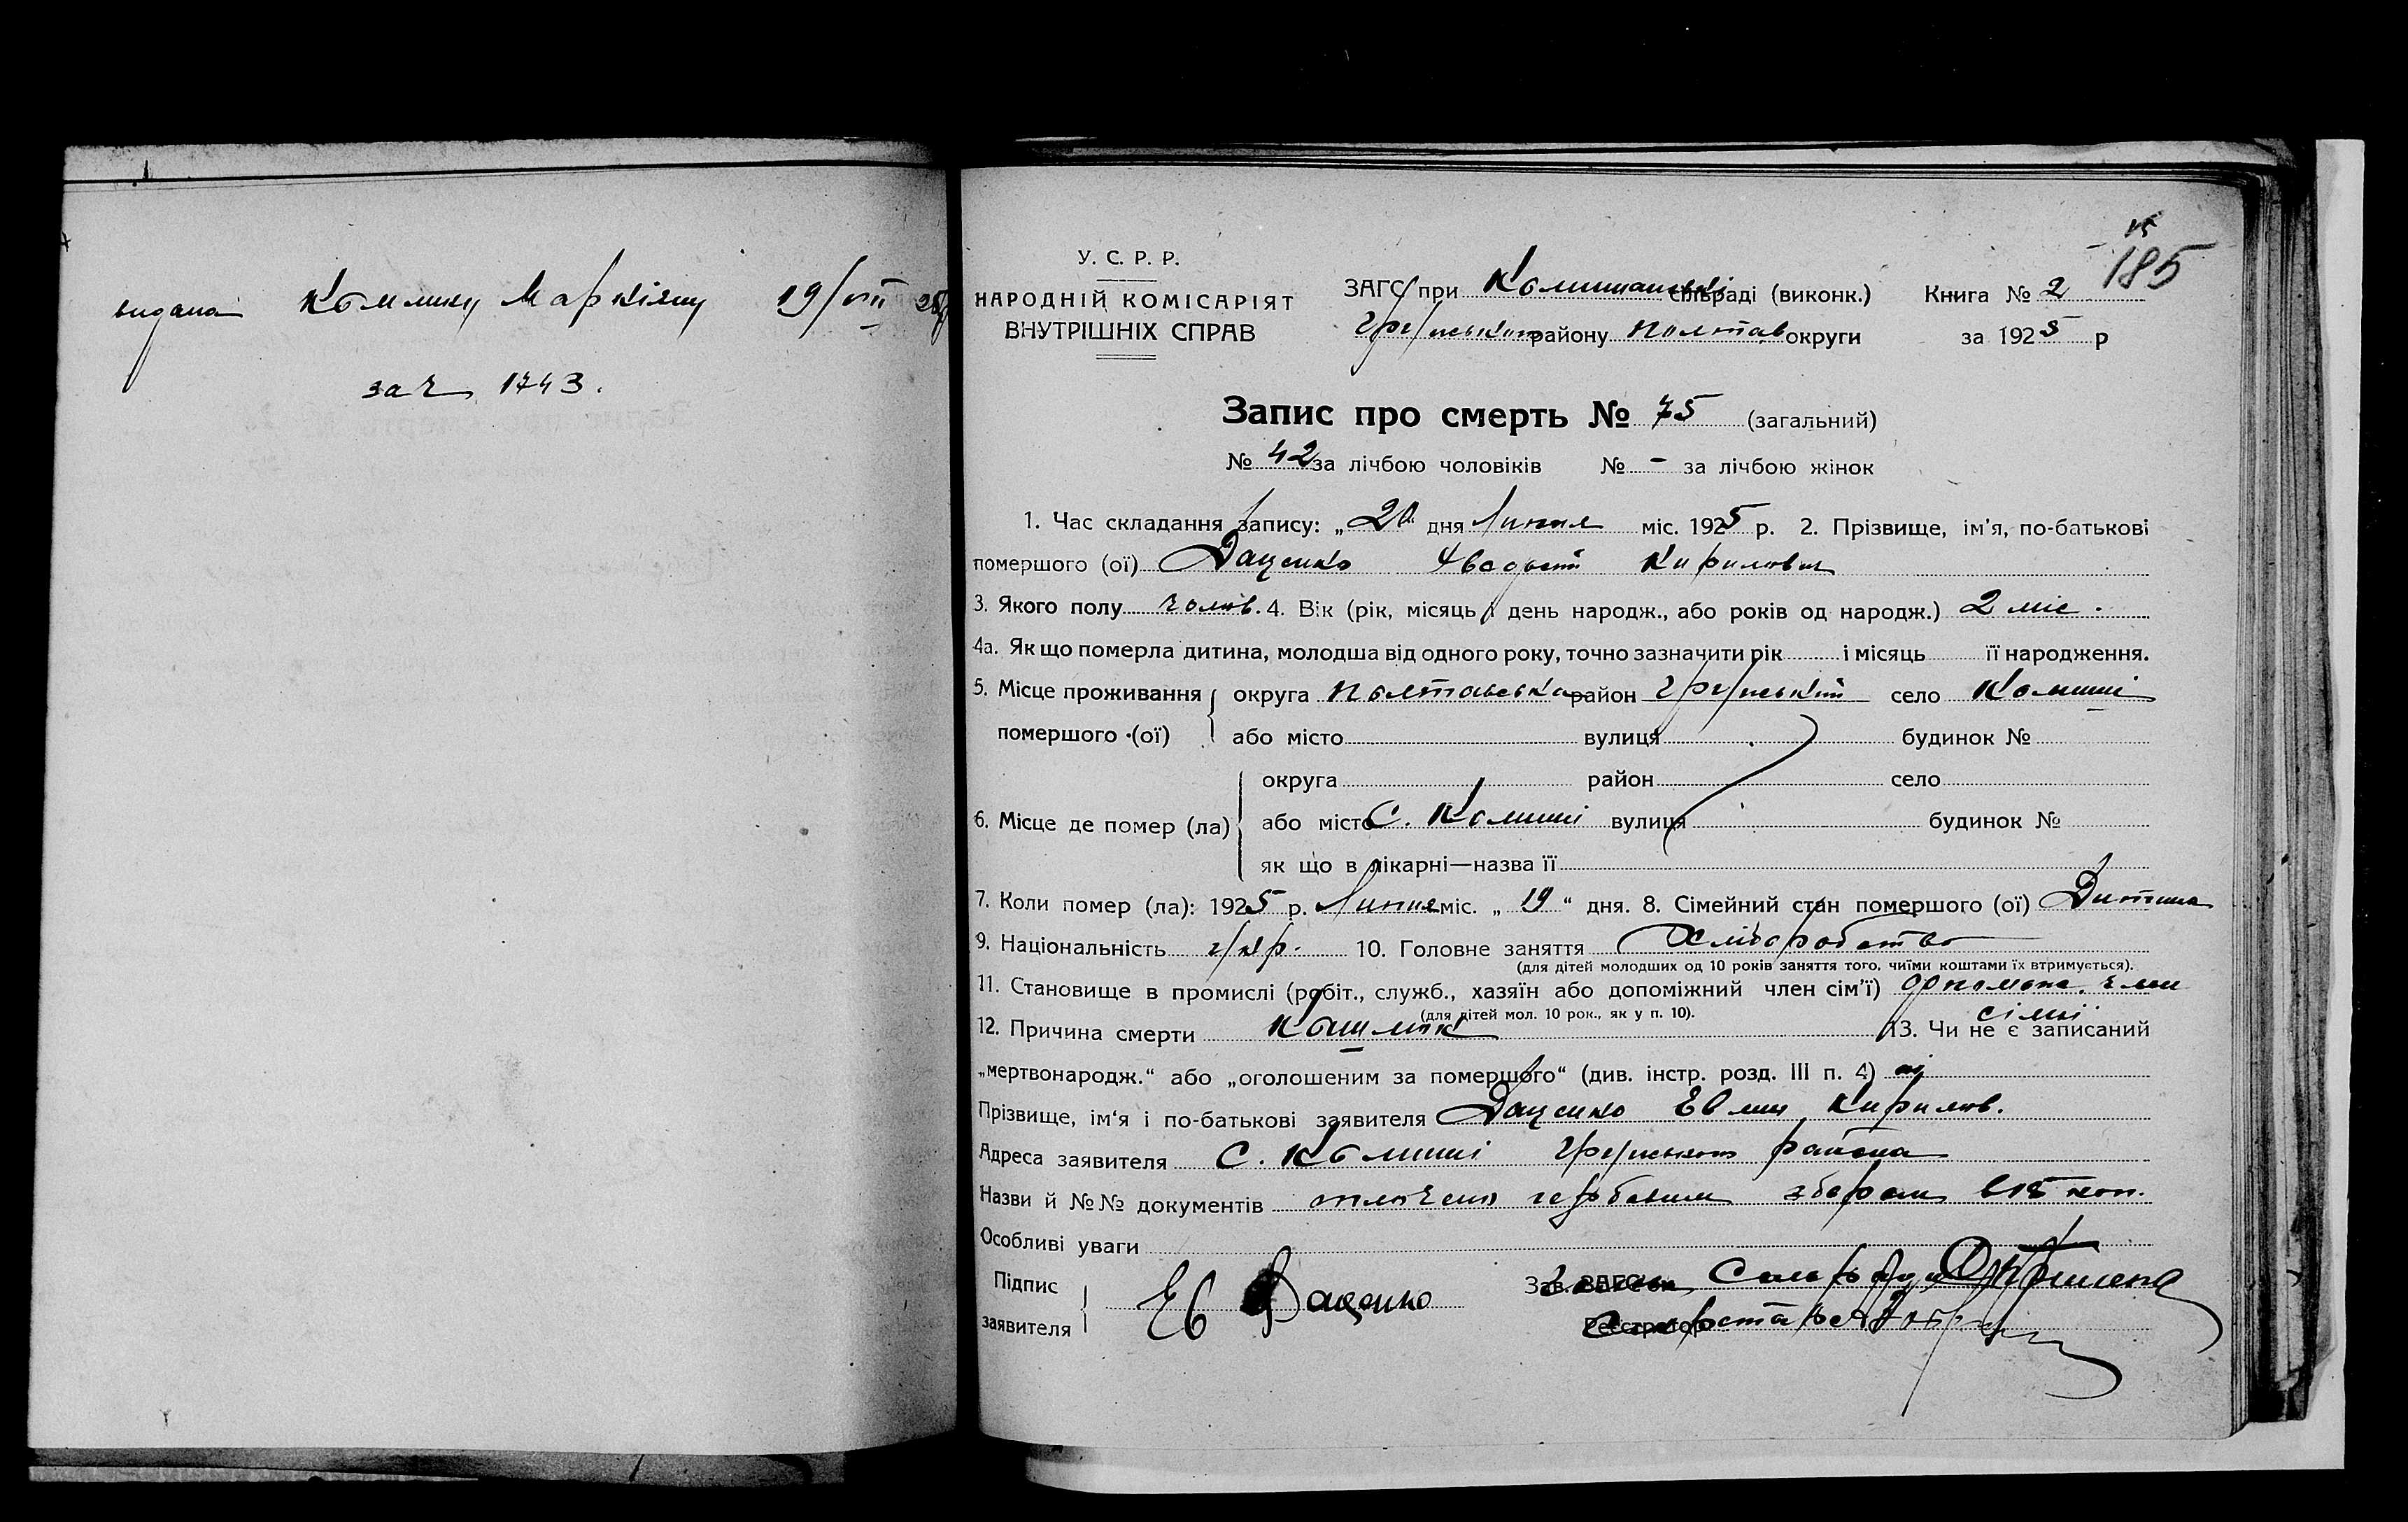 видана Комлику Маркіяну 19/VIII 25
за ч 1743.
15
185
У. С. Р. Р.
НАРОДНІЙ КОМІСАРІЯТ
ВНУТРІШНІХ СПРАВ
ЗАГС при сільраді (виконк.) Книга № 2
району Полтав округи за 1925 р
Запис про смерть № 75 (загальний)
№ 42 за лічбою чоловіків № - за лічбою жінок
1. Час складання запису: „20" дня Липня міс. 1925 р. 2. Прізвище, ім'я, по-батькові
помершого (ої) Даценко Кирилович
3. Якого полу чолов. 4. Вік (рік, місяць і день народж., або років од народж.) 2 міс.
4а. Як що померла дитина, молодша від одного року, точно зазначити рік і місяць її народження.
5. Місце проживання округа Полтавська район село Комиші
помершого (ої) або місто вулиця будинок №
округа район село
6. Місце де помер (ла) або місто С. Комиші вулиця будинок №
як що в лікарні—назва її
7. Коли помер (ла): 1925 р. Липня міс. „19" дня. 8. Сімейний стан помершого (ої) Дитина
9. Національність укр. 10. Головне заняття Хліборобство
(для дітей молодших од 10 років заняття того, чиїми коштами їх втримується).
11. Становище в промислі (робіт., служб., хазяїн або допоміжний член сім'ї) допомож. член
сімї
(для дітей мол. 10 рок., як у п. 10).
12. Причина смерти Кашлюк 13. Чи не є записаний
„мертвонародж." або „оголошеним за помершого" (див. інстр. розд. III п. 4) ні
Прізвище, ім'я і по-батькові заявителя Даценко Кирилов.
Адреса заявителя С. Комиші района
Назви й №№ документів оплочено гербовим збором 15 коп.
Особливі уваги
Підпис
заявителя Ев Даценко
Зав. ЗАГС'ом
Реєстратор